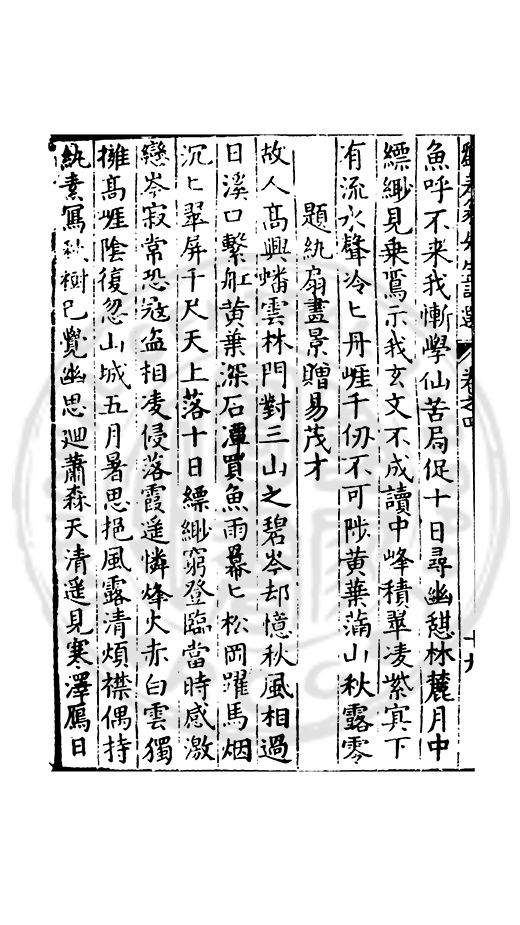 卷之四 十九
魚呼不来我慚學仙苦局促十日尋幽憇林麓月中
縹緲見乗鸞示我玄文不成讀中峰積翠凌紫㝠下
有流水聲冷〻丹崖千仞不可陟黄葉滿山秋露零
題紈扇畫景贈易茂才
故人髙興蟠雲林門對三山之碧岑却憶秋風相過
日溪口繫舡黄葉深石潭買魚雨羃〻松岡躍馬烟
沉〻翠屏千尺天上落十日縹緲窮登臨當時感激
戀岑寂常恐冦盗相凌侵落霞遥憐烽火赤白雲獨
擁髙崖陰復忽山城五月暑思挹風露清煩襟偶持
紈素冩秋樹已覺幽思廻蕭森天清遥見寒澤鴈日